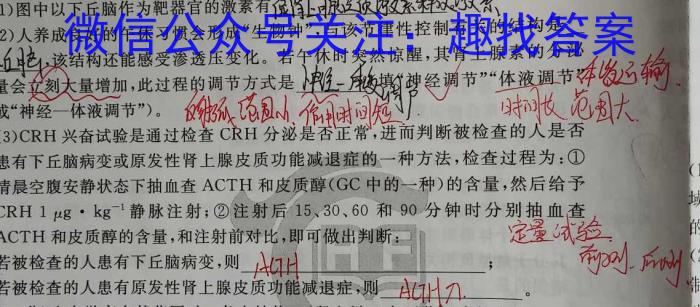 1)图中以下丘脑作为靶器官的激素有
2)人养成良好的午休习惯会形成"生物钟"
微信公众号关注：趣找答案
该结构还能感受渗透压变化。若午休时突然惊醒,其肾上腺素的分泌
量会立刻大量增加,此过程的调节方式是 填"神经调节""体液调节"
或"神经—体液调节")。
反射弧 范围小 作用时间短
体液运输
时间长 范围大
(3)CRH兴奋试验是通过检查CRH分泌是否正常,进而判断被检查的人是否
患有下丘脑病变或原发性肾上腺皮质功能减退症的一种方法,检查过程为:①
清晨空腹安静状态下抽血查ACTH和皮质醇(GC中的一种)的含量,然后给予
CRH 1 μg·kg⁻¹静脉注射;②注射后15、30、60和90分钟时分别抽血查
ACTH和皮质醇的含量,和注射前对比,即可做出判断:
定量试验
前测 后测
若被检查的人患有下丘脑病变,则 ACTH ;
若被检查的人患有原发性肾上腺皮质功能减退症,则 ACTH 。